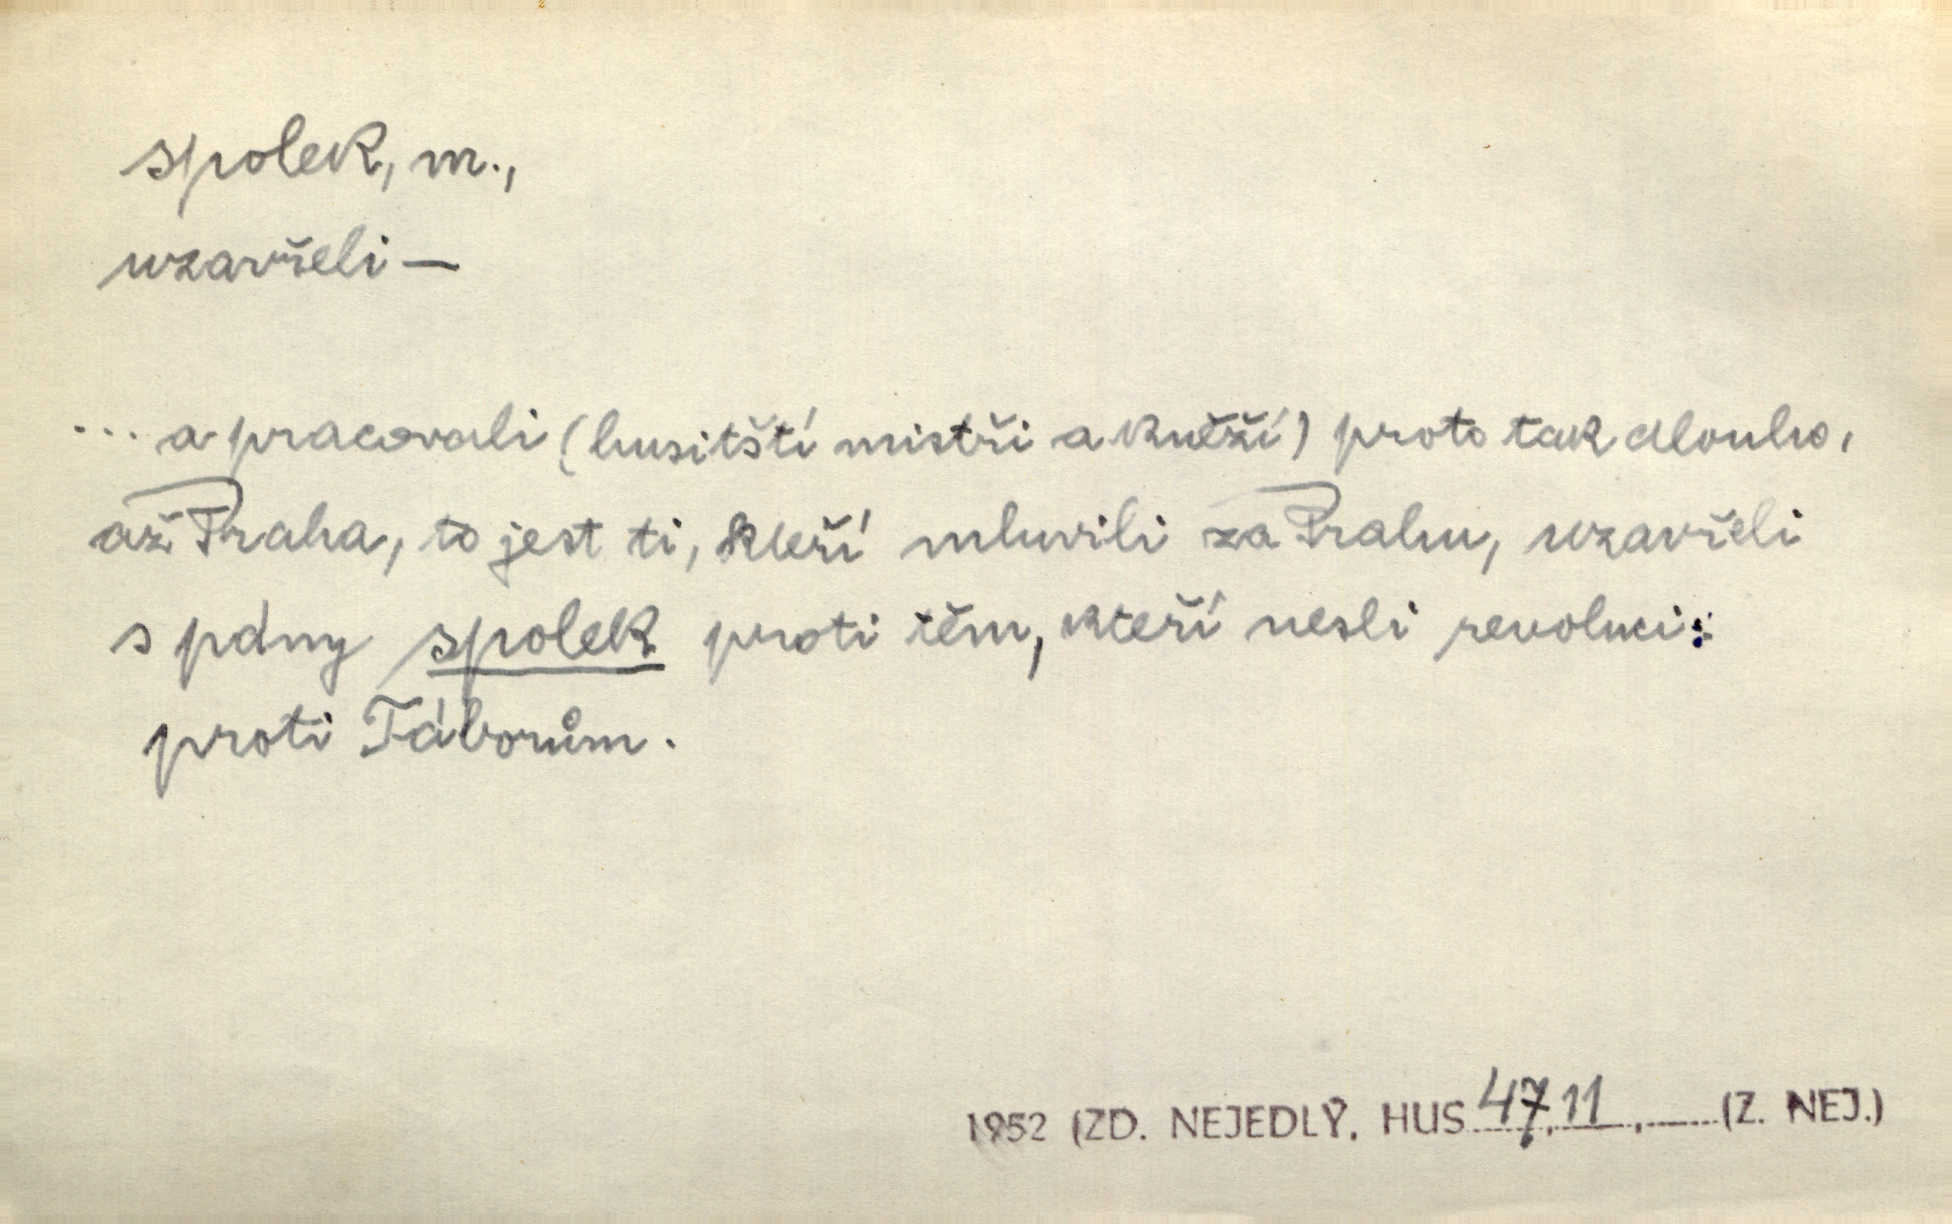 spolek, m.,
uzavřeli —
... a pracovali (husitští mistři a kněží) proto tak dlouho,
až Praha, to jest ti, kteří mluvili za Prahu, uzavřeli
s pány spolek proti těm, kteří nesli revoluci:
proti Táborům.
1952 (ZD. NEJEDLÝ, HUS 47, 11, (Z. NEJ.)